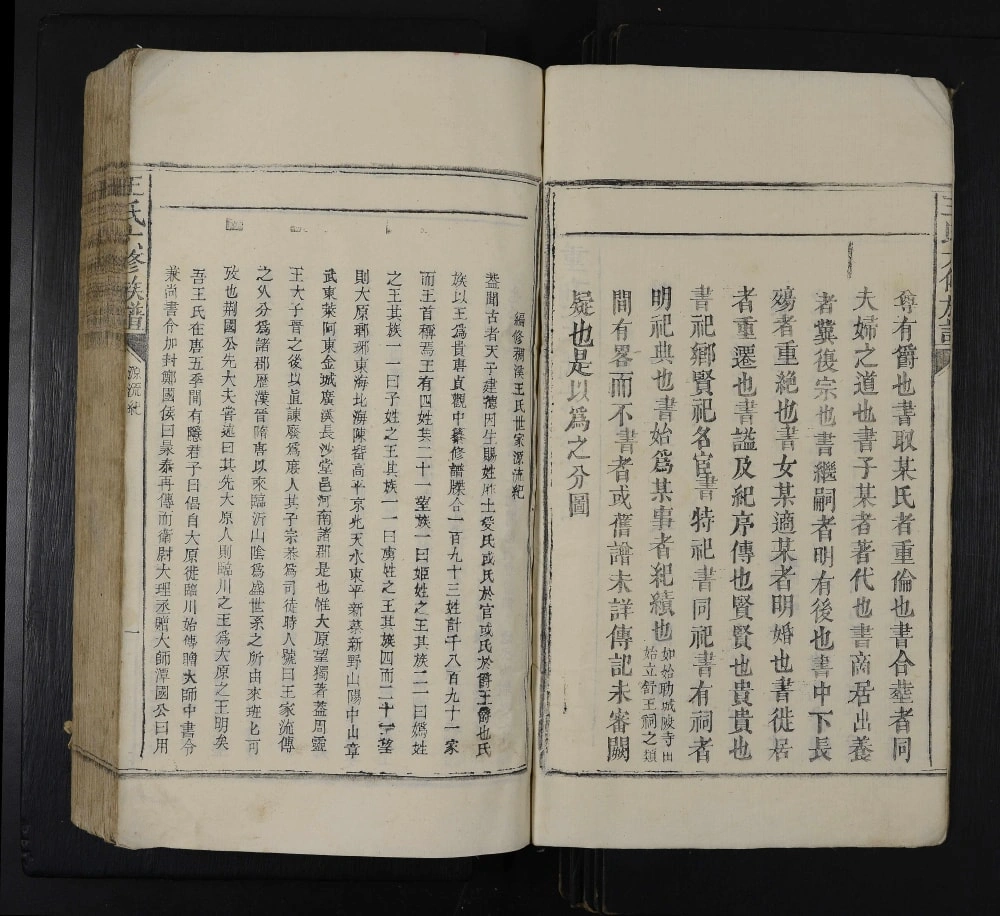 尊有爵也書取某氏者重倫也書合塟者同
夫婦之道也書子某者著代也書商居出養
者冀復宗也書繼嗣者明有後也書中下長
殤者重絶也書女某適某者明婚也書徙居
者重遷也書謚及紀序傳也賢賢也貴貴也
書祀鄉賢祀名宦書特祀書同祀書有祠者
明祀典也書始爲某事者紀績也如始助城殿寺田
始立舒王祠之類
間有畧而不書者或舊譜未詳傳記未審闕
疑也是以爲之分圖
編修稠溪王氏世家源流紀
葢聞古者天子建德因生賜姓胙土爰氏或氏於官或氏於爵王爵也氏
族以王爲貴唐貞觀中纂修譜牒合一百九十三姓計千八百九十一家
而王首稱焉王有四姓其二十一望族一曰姬姓之王其族二一曰嬀姓
之王其族一一曰子姓之王其族一一曰虜姓之王其族四而二十一望
則大原瑯琊東海北海陳留高平京兆天水東平新蔡新野山陽中山章
武東萊河東金城廣漢長沙堂邑河南諸郡是也惟大原望獨著葢周靈
王大子晋之後以直諫廢爲庻人其子宗恭爲司徒時人號曰王家流傳
之乆分爲諸郡歴漢晉隋唐以來臨沂山陰爲盛世系之所由來班七可
攷也荆國公先大夫嘗述曰其先大原人則臨川之王爲大原之王明矣
吾王氏在唐五季間有隱君子曰倡自大原徙臨川始傳贈大師中書令
兼尚書令加封鄭國侯曰景泰再傳而衛尉大理丞贈大師潭國公曰用
王氏六修族譜
源流紀
一